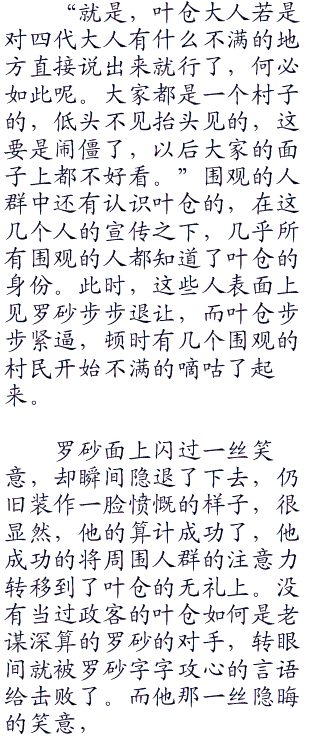 “就是，叶仓大人若是
对四代大人有什么不满的地
方直接说出来就行了，何必
如此呢。大家都是一个村子
的，低头不见抬头见的，这
要是闹僵了，以后大家的面
子上都不好看。”围观的人
群中还有认识叶仓的，在这
几个人的宣传之下，几乎所
有围观的人都知道了叶仓的
身份。此时，这些人表面上
见罗砂步步退让，而叶仓步
步紧逼，顿时有几个围观的
村民开始不满的嘀咕了起
来。
罗砂面上闪过一丝笑
意，却瞬间隐退了下去，仍
旧装作一脸愤慨的样子，很
显然，他的算计成功了，他
成功的将周围人群的注意力
转移到了叶仓的无礼上。没
有当过政客的叶仓如何是老
谋深算的罗砂的对手，转眼
间就被罗砂字字攻心的言语
给击败了。而他那一丝隐晦
的笑意，